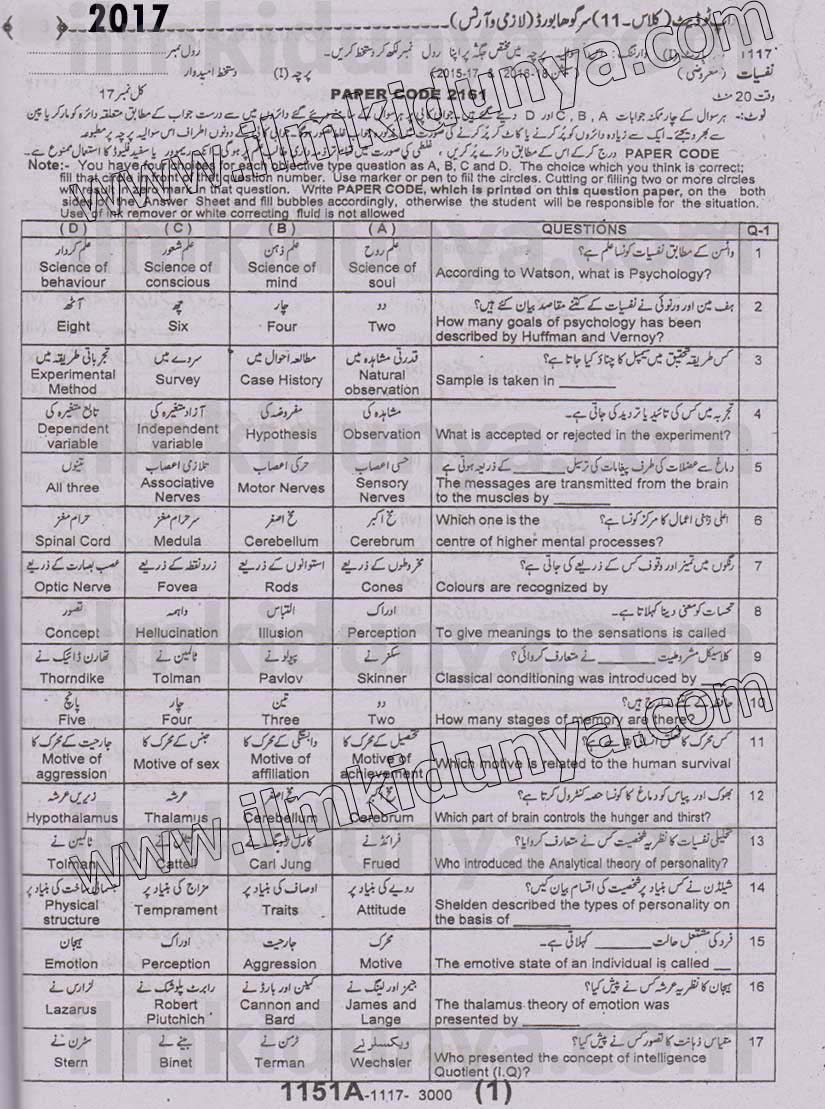 2017
اپ ٹو ڈیٹ (کلاس ۔ 11) سرگودھا بورڈ (لازمی و آرٹس)
1117
نفسیات (معروضی) پرچہ (I) دستخط امیدوار
وقت 20 منٹ PAPER CODE 2161 کل نمبر 17
Note:- You have four choices for each objective type question as A, B, C and D. The choice which you think is correct;
fill that circle in front of that question number. Use marker or pen to fill the circles. Cutting or filling two or more circles
will result in zero mark in that question. Write PAPER CODE, which is printed on this question paper, on the both
sides of the Answer Sheet and fill bubbles accordingly, otherwise the student will be responsible for the situation.
Use of ink remover or white correcting fluid is not allowed
( D ) ( C ) ( B ) ( A ) QUESTIONS Q-1
علم کردار علم شعور علم ذہن علم روح واٹسن کے مطابق نفسیات کونسا علم ہے؟ 1
Science of behaviour Science of conscious Science of mind Science of soul According to Watson, what is Psychology?
آٹھ چھ چار دو ہف مین اور ورنوئی نے نفسیات کے کتنے مقاصد بیان کئے ہیں؟ 2
Eight Six Four Two How many goals of psychology has been described by Huffman and Vernoy?
تجرباتی طریقہ میں سروے میں مطالعہ احوال میں قدرتی مشاہدہ میں کس طریقہ تحقیق میں سیمپل کا چناؤ کیا جاتا ہے؟ 3
Experimental Method Survey Case History Natural observation Sample is taken in ______
تابع متغیرہ کی آزاد متغیرہ کی مفروضہ کی مشاہدہ کی تجربہ میں کس کی تائید یا تردید کی جاتی ہے۔ 4
Dependent variable Independent variable Hypothesis Observation What is accepted or rejected in the experiment?
تینوں تلازمی اعصاب حرکی اعصاب حسی اعصاب دماغ سے عضلات کی طرف پیغامات کی ترسیل ______ کے ذریعہ ہوتی ہے 5
All three Associative Nerves Motor Nerves Sensory Nerves The messages are transmitted from the brain to the muscles by ______
حرام مغز سر حرام مغز مخ اصغر مخ اکبر اعلیٰ ذہنی اعمال کا مرکز کونسا ہے؟ 6
Spinal Cord Medula Cerebellum Cerebrum Which one is the centre of higher mental processes?
عصب بصارت کے ذریعے زرد نقطہ کے ذریعے استوانوں کے ذریعے مخروطوں کے ذریعے رنگوں میں تمیز اور وقوف کس کے ذریعے کی جاتی ہے؟ 7
Optic Nerve Fovea Rods Cones Colours are recognized by
تصور واہمہ التباس ادراک تحسسات کو معنی دینا کہلاتا ہے۔ 8
Concept Hellucination Illusion Perception To give meanings to the sensations is called
تھارن ڈائیک نے ٹالمین نے پیولو نے سکنر نے کلاسیکل مشروطیت ______ نے متعارف کروائی؟ 9
Thorndike Tolman Pavlov Skinner Classical conditioning was introduced by ______
پانچ چار تین دو 10
Five Four Three Two How many stages of memory are there?
جارحیت کے محرک کا جنس کے محرک کا وابستگی کے محرک کا تحصیل کے محرک کا 11
Motive of aggression Motive of sex Motive of affiliation Motive of achievement Which motive is related to the human survival
زیریں عرشہ عرشہ مخ اصغر مخ اکبر بھوک اور پیاس کو دماغ کا کونسا حصہ کنٹرول کرتا ہے؟ 12
Hypothalamus Thalamus Cerebellum Cerebrum Which part of brain controls the hunger and thirst?
ٹالمین نے فرائڈ نے تحلیلی نفسیات کا نظریہ شخصیت کس نے متعارف کروایا؟ 13
Tolman Cattell Carl Jung Frued Who introduced the Analytical theory of personality?
جسمانی ساخت کی بنیاد پر مزاج کی بنیاد پر اوصاف کی بنیاد پر رویے کی بنیاد پر شیلڈن نے کس بنیاد پر شخصیت کی اقسام بیان کیں؟ 14
Physical structure Temprament Traits Attitude Shelden described the types of personality on the basis of ______
ہیجان ادراک جارحیت محرک فرد کی مشتعل حالت ______ کہلاتی ہے۔ 15
Emotion Perception Aggression Motive The emotive state of an individual is called __
لزارس نے رابرٹ پلوٹشک نے کینن اور بارڈ نے جیمز اور لینگ نے ہیجان کا نظریہ عرشہ کس نے پیش کیا؟ 16
Lazarus Robert Plutchich Cannon and Bard James and Lange The thalamus theory of emotion was presented by ______
سٹرن نے بینے نے ٹرمن نے ویکسلر نے مقیاس ذہانت کا تصور کس نے پیش کیا؟ 17
Stern Binet Terman Wechsler Who presented the concept of intelligence Quotient (I.Q)?
1151A-1117- 3000 (1)
www.ilmkidunya.com
www.ilmkidunya.com